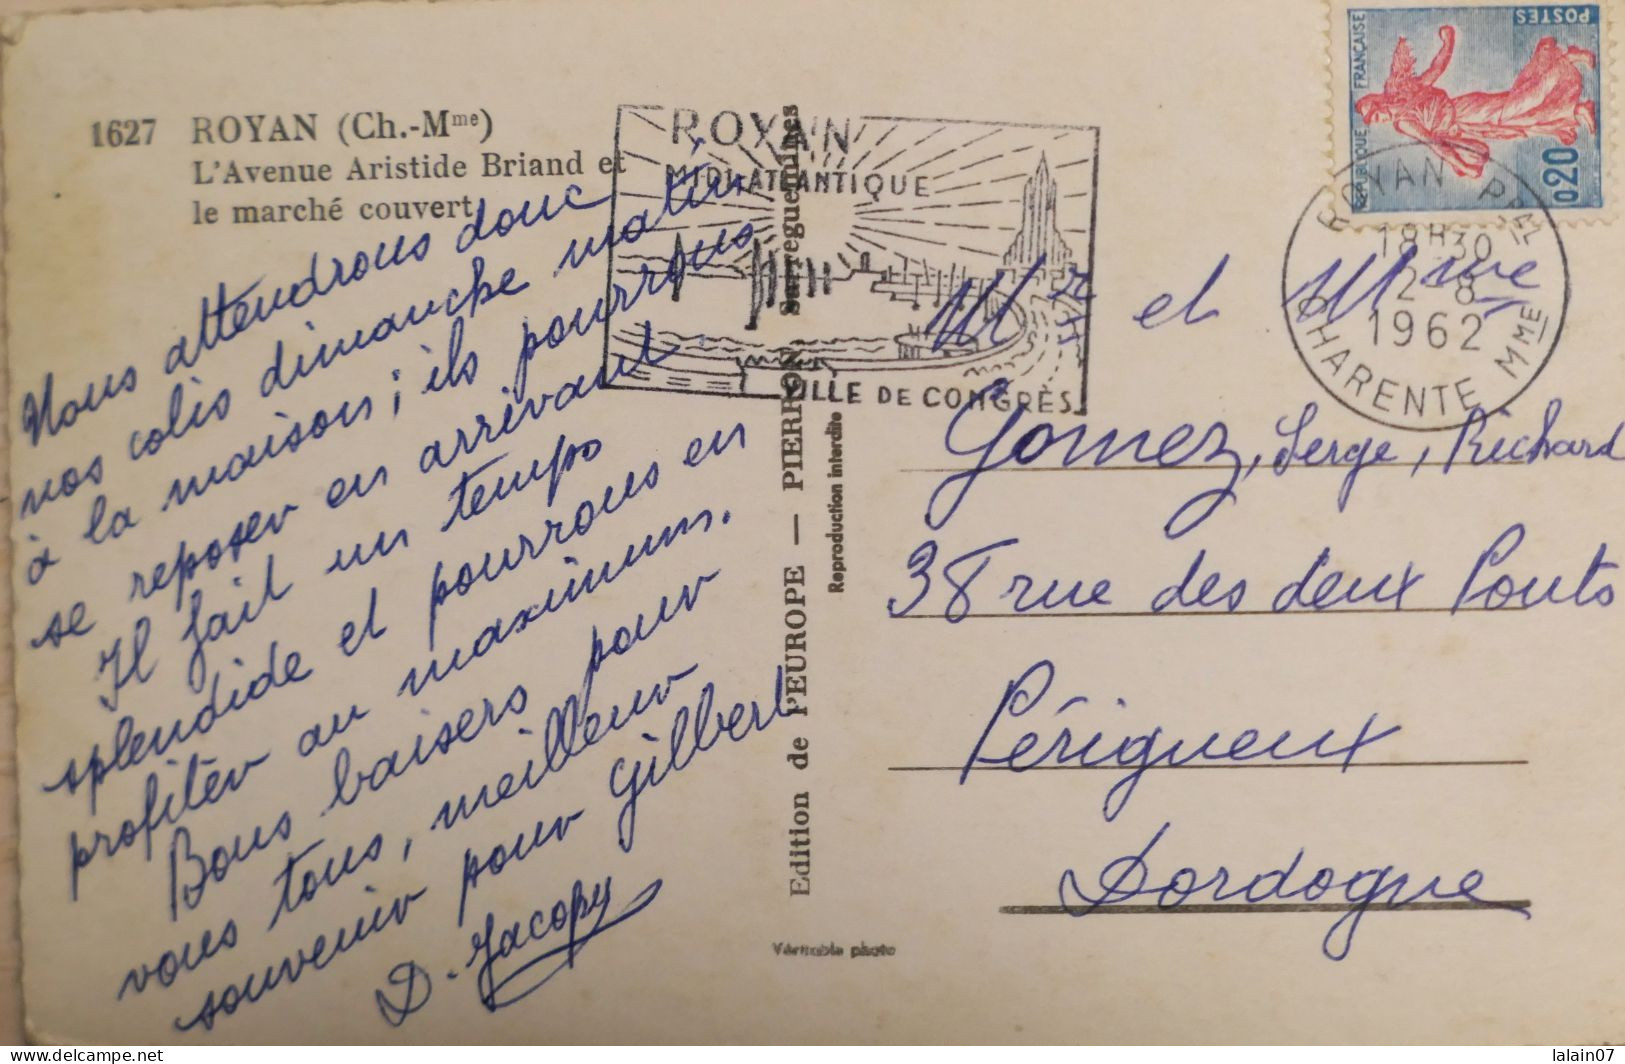 1627 ROYAN (Ch.-Mme)
L'Avenue Aristide Briand et
le marché couvert
Nous attendrons donc
nos colis dimanche matin
à la maison ; ils pourrons
se reposer en arrivant.
Il fait un temps
splendide et pourrons en
profiter au maximum.
Bons baisers pour
vous tous, meilleur
souvenir pour Gilbert
D. Jacopy
Edition de l'EUROPE — PIERRON Sarreguemines
Reproduction interdite
Véritable photo
ROYAN
MIDI-ATLANTIQUE
VILLE DE CONGRÈS
RÉPUBLIQUE FRANÇAISE
POSTES
0,20
ROYAN PPAL
18H30
2-8
1962
CHARENTE MME
Mr et Mme
Gomez, Serge, Richard
38 rue des deux Ponts
Périgueux
Dordogne
lalain07